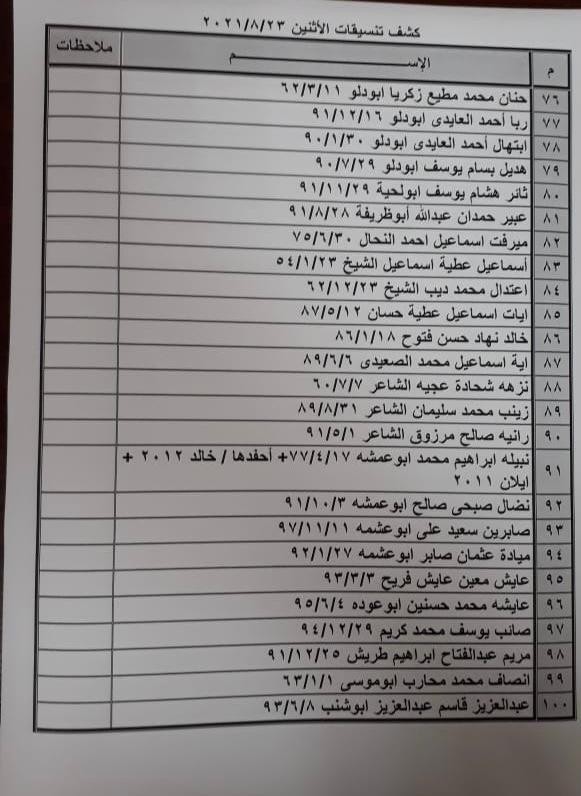 كشف تنسيقات الأثنين ٢٠٢١/٨/٢٣
م الإســـم ملاحظات
٧٦ حنان محمد مطيع زكريا ابودلو ٦٢/٣/١١
٧٧ ربا أحمد العايدى ابودلو ٩١/١٢/١٦
٧٨ ابتهال أحمد العايدى ابودلو ٩٠/١/٣٠
٧٩ هديل بسام يوسف ابودلو ٩٠/٧/٢٩
٨٠ ثائر هشام يوسف ابولحية ٩١/١١/٢٩
٨١ عبير حمدان عبدالله أبوظريفة ٩١/٨/٢٨
٨٢ ميرفت اسماعيل احمد النحال ٧٥/٦/٣٠
٨٣ أسماعيل عطية اسماعيل الشيخ ٥٤/١/٢٣
٨٤ اعتدال محمد ديب الشيخ ٦٢/١٢/٢٣
٨٥ ايات اسماعيل عطية حسان ٨٧/٥/١٢
٨٦ خالد نهاد حسن فتوح ٨٦/١/١٨
٨٧ اية اسماعيل محمد الصعيدى ٨٩/٦/٦
٨٨ نزهه شحادة عجيه الشاعر ٦٠/٧/٧
٨٩ زينب محمد سليمان الشاعر ٨٩/٨/٣١
٩٠ رانيه صالح مرزوق الشاعر ٩١/٥/١
٩١ نبيله ابراهيم محمد ابوعمشه ٧٧/٤/١٧+ أحفدها / خالد ٢٠١٢ +
ايلان ٢٠١١
٩٢ نضال صبحى صالح ابوعمشه ٩١/١٠/٣
٩٣ صابرين سعيد على ابوعشمه ٩٧/١١/١١
٩٤ ميادة عثمان صابر ابوعشمه ٩٢/١/٢٧
٩٥ عايش معين عايش فريح ٩٣/٣/٣
٩٦ عايشه محمد حسنين ابوعوده ٩٥/٦/٤
٩٧ صائب يوسف محمد كريم ٩٤/١٢/٢٩
٩٨ مريم عبدالفتاح ابراهيم طريش ٩١/١٢/٢٥
٩٩ انصاف محمد محارب ابوموسى ٦٣/١/١
١٠٠ عبدالعزيز قاسم عبدالعزيز ابوشنب ٩٣/٦/٨